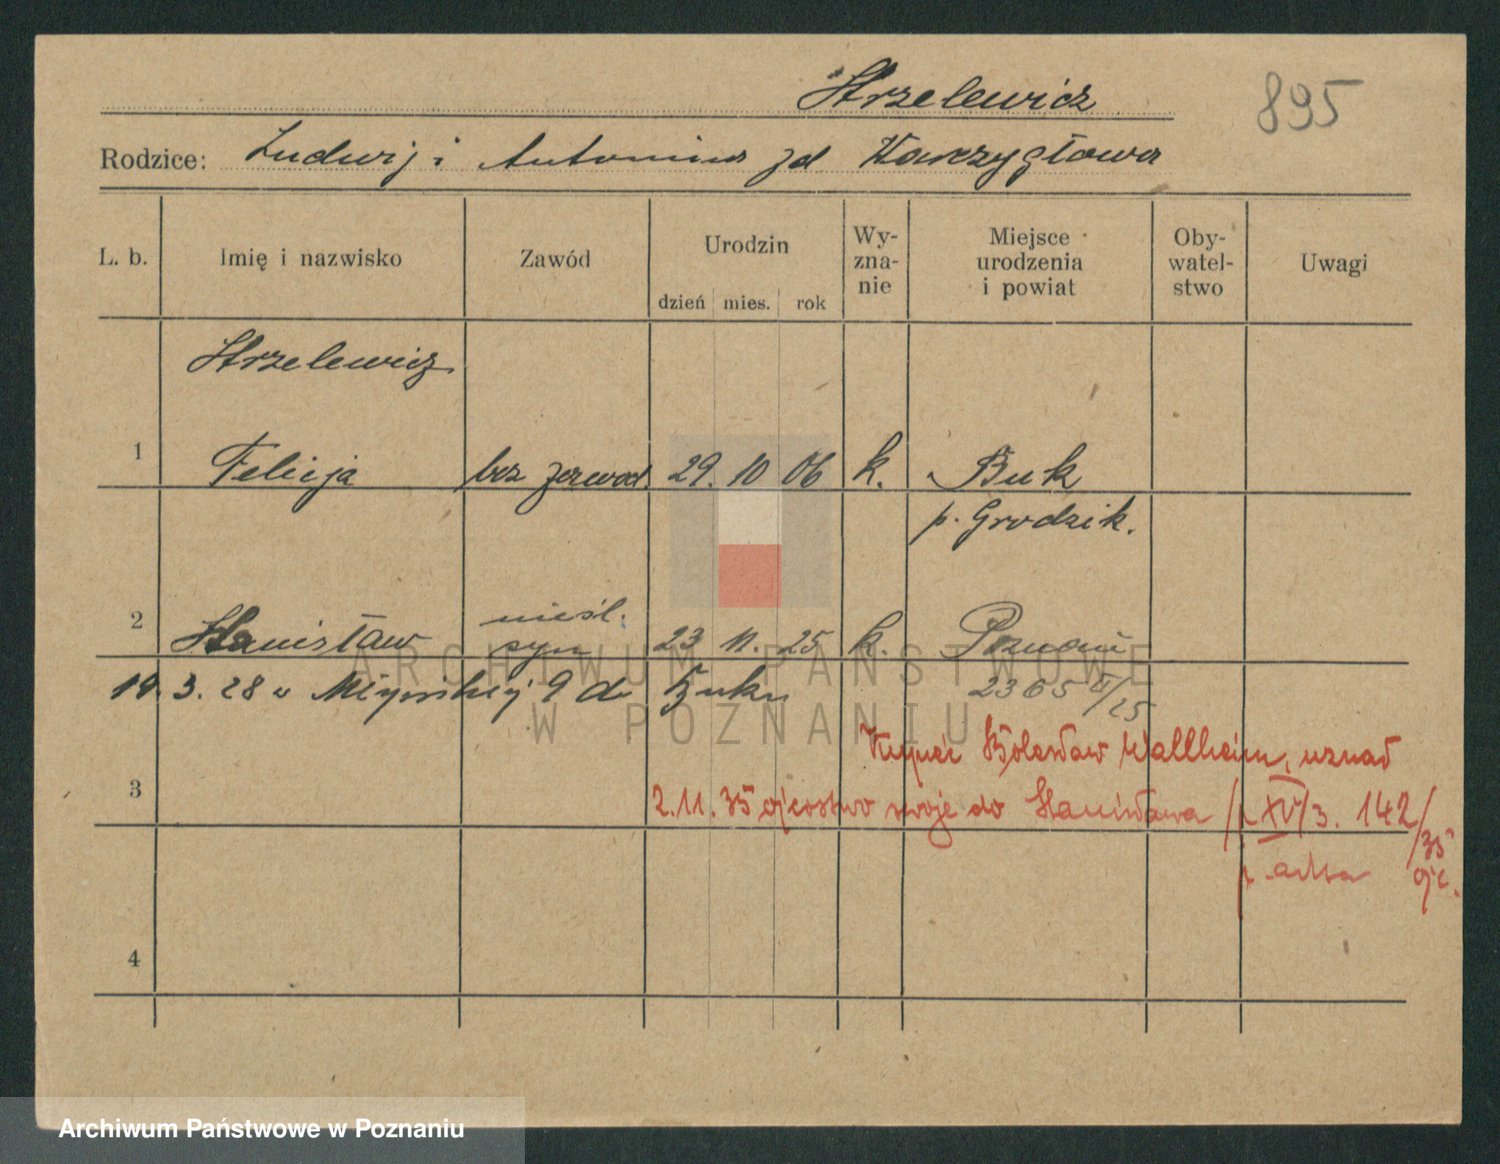 Strzelewicz
895
Rodzice: Ludwij i Antonina zd Karzygłowa
L. b. Imię i nazwisko Zawód Urodzin dzień mies. rok Wy-zna-nie Miejsce urodzenia i powiat Oby-watel-stwo Uwagi
Strzelewicz
1 Felicja bez zawod. 29. 10 06 k. Buk
p. Grodzik.
nieśl.
2 Stanisław syn 23 11. 25 k. Poznań
19. 3. 28 v Młyńskiej 9 do Buku 2365 /25
Kupiec Bolesław Wallheim, uznał
3 2.11.35 ojcostwo swoje do Stanisława / XV/3. 142/35
p. akta ojc.
4
ARCHIWUM PAŃSTWOWE
W POZNANIU
Archiwum Państwowe w Poznaniu